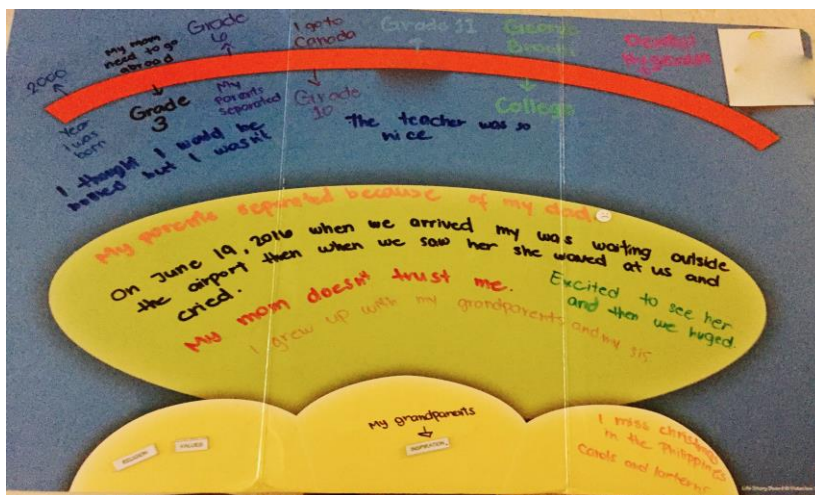 2000
Year
I was
born
My mom
need to go
abroad
Grade
3
Grade
6
My
parents
separated
I go to
Canada
Grade
10
Grade 11
George
Brown
College
I thought I would be
bullied but I wasn't
The teacher was so
nice
My parents separated because of my dad.
On June 19, 2016 when we arrived my was waiting outside
the airport then when we saw her she waved at us and
cried.
My mom doesn't trust me.
Excited to see her
and then we huged.
I grew up with my grandparents and my sis
RELIGION
VALUES
My grandparents
INSPIRATION
I miss christmas
in the Philippines
carols and lanterns